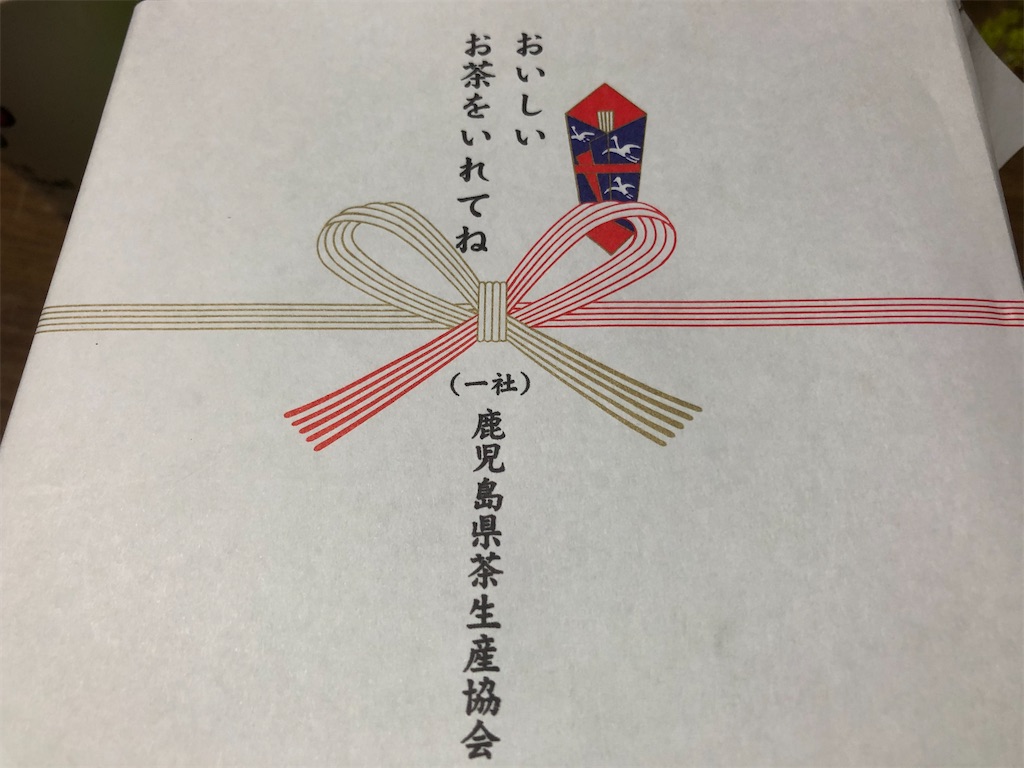 おいしい
お茶をいれてね
（一社）
鹿児島県茶生産協会